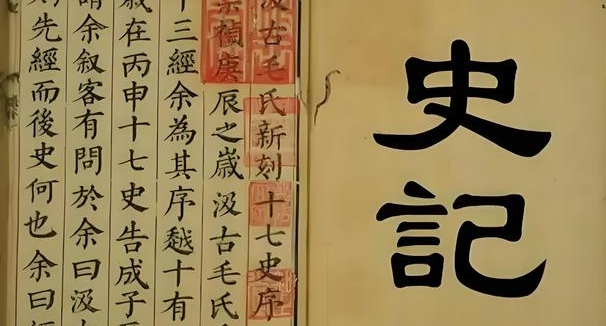 史記
汲古毛氏新刻十七史序
崇禎庚辰之歲汲古毛氏
十三經余為其序越十有
歲在丙申十七史告成子
余叙客有問於余曰汲
先經而後史何也余曰